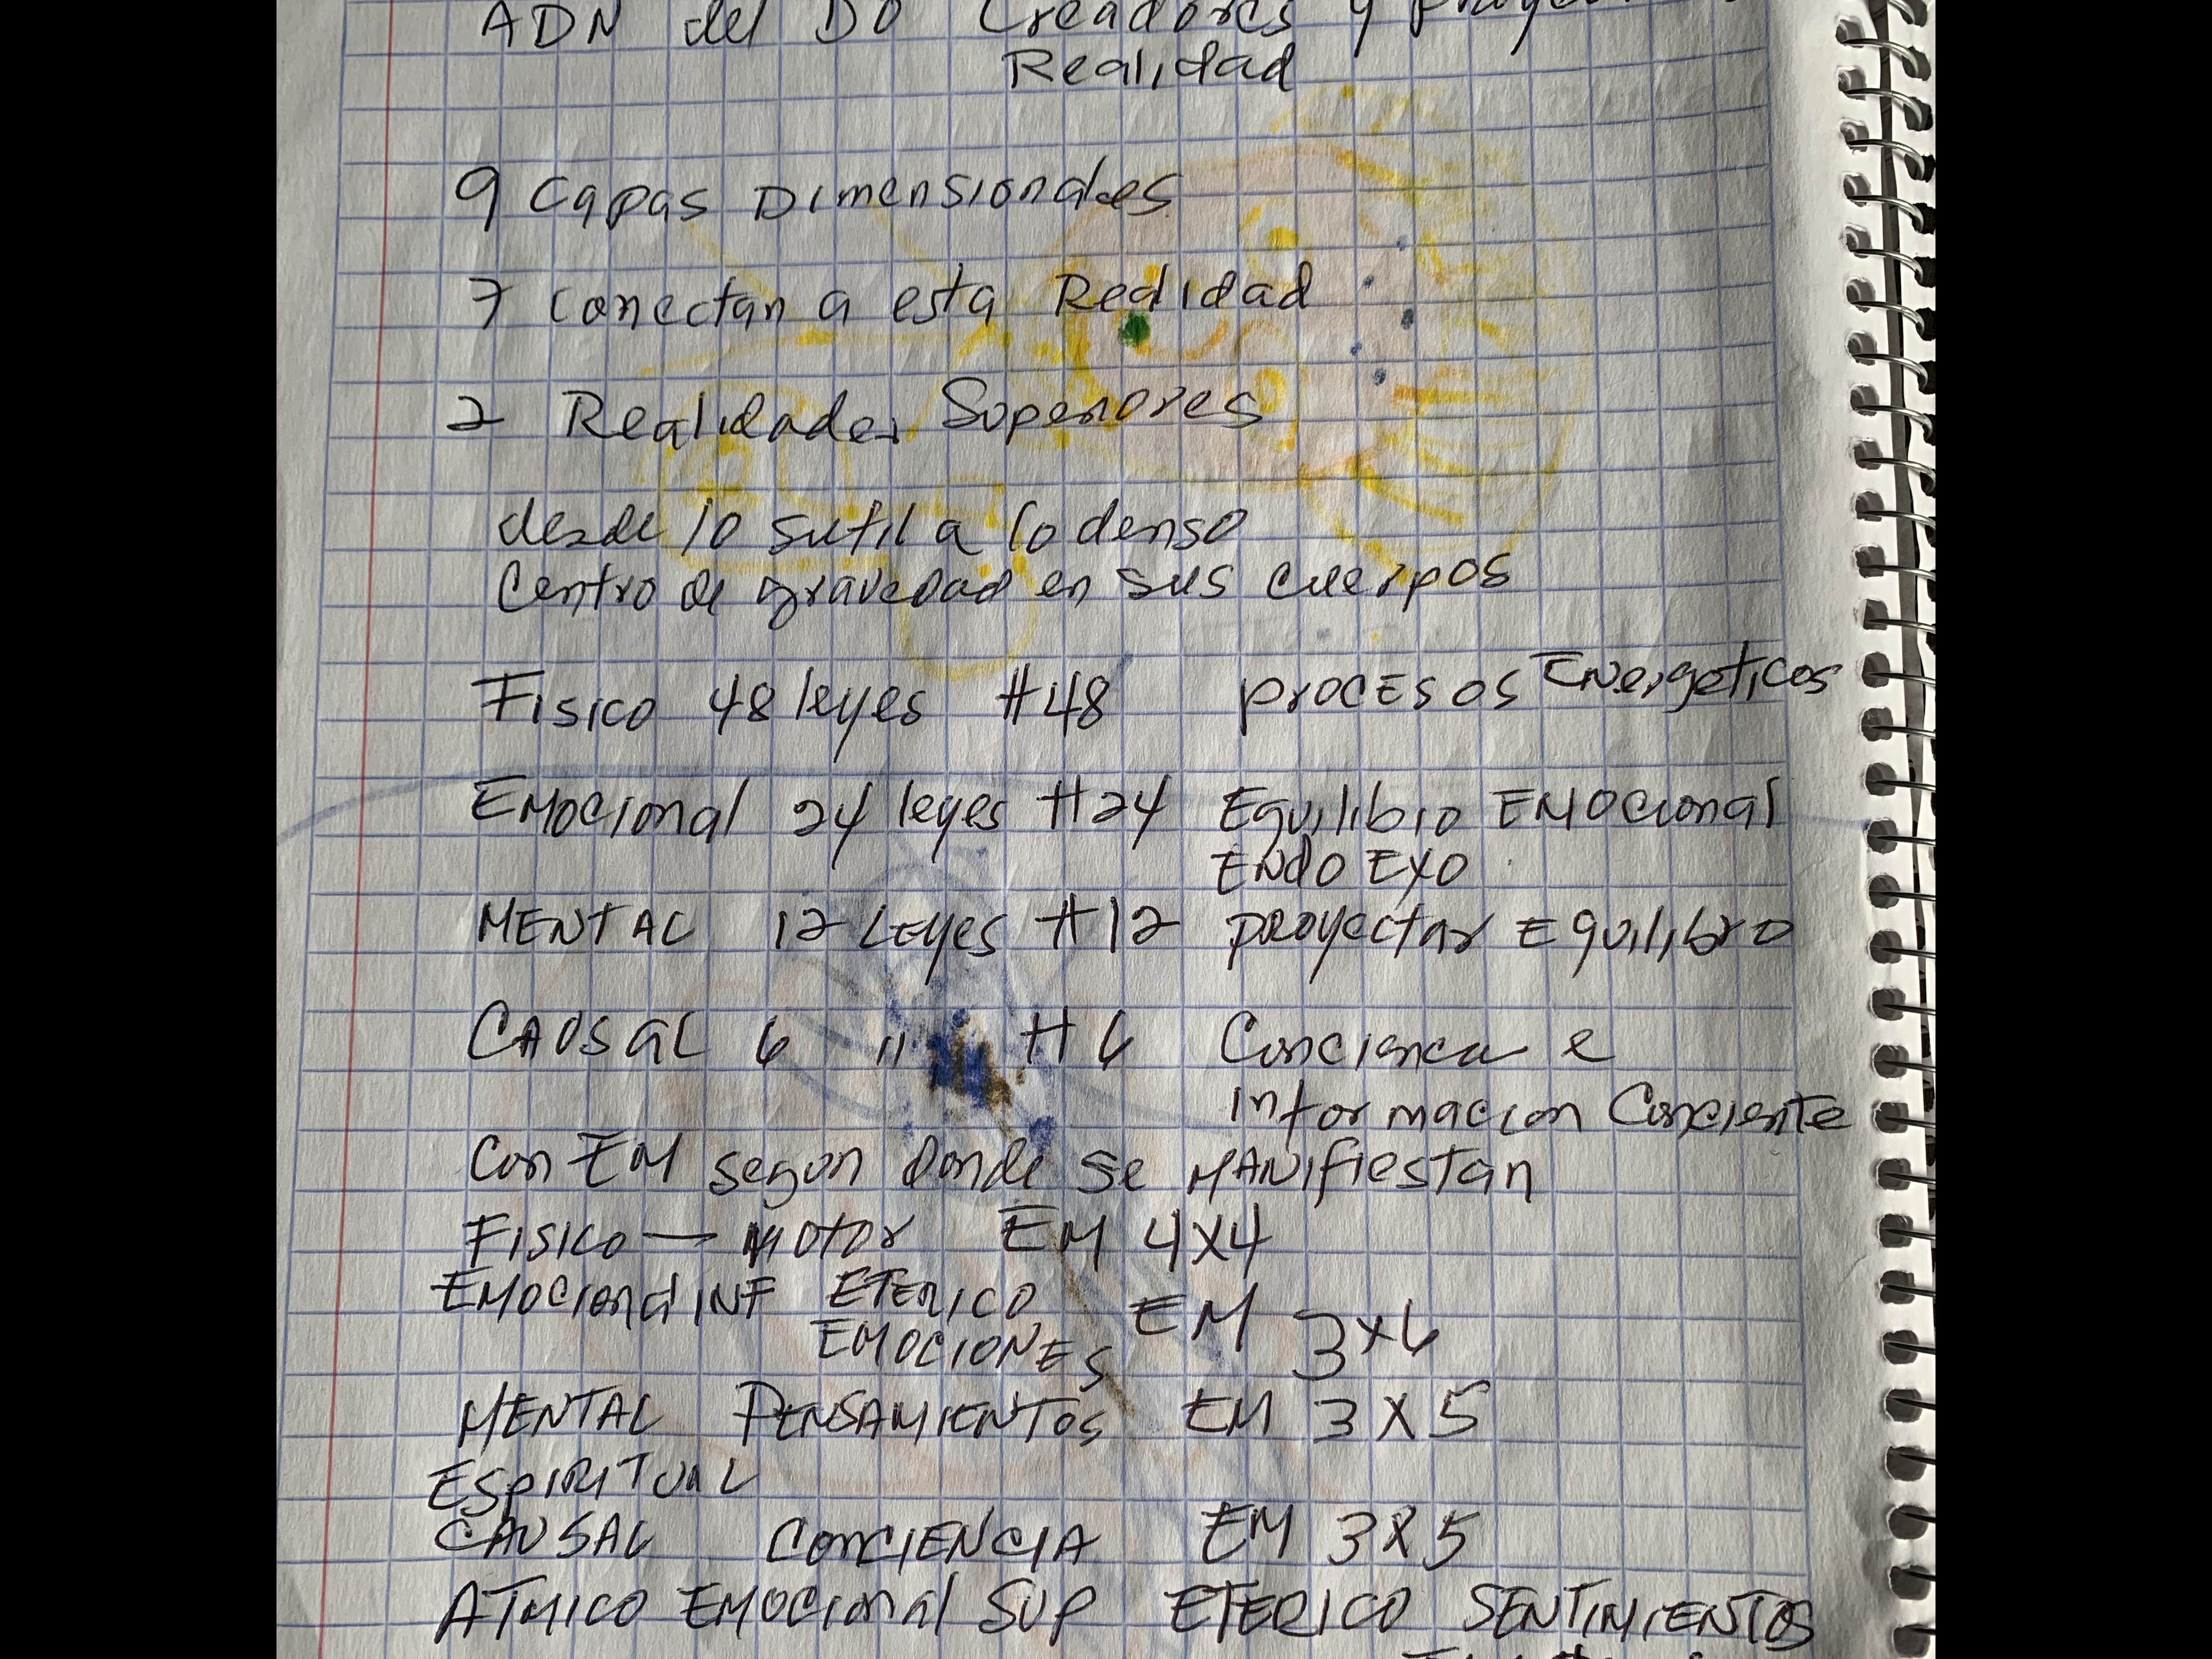 ADN del DO Creadores y
Realidad
9 Capas Dimensionales
7 Conectan a esta Realidad
2 Realidades Superiores
desde lo sutil a lo denso
Centro de gravedad en sus cuerpos
Fisico 48 leyes #48 procesos Energeticos
Emocional 24 leyes H24 Equilibio EMOCional
ENdO EXO
MENTAL 12 LEyes H12 proyectar Equilibro
CAUSAL 6 " H6 Conciencia e
informacion Conciente
Con EM segun donde se MANifiestan
Fisico — Motor EM 4X4
EMOCional INF ETERICO EM 3x6
EMOCIONES
MENTAL PENSAMIENTOS EM 3X5
ESPIRITUAL
CAUSAL CONCIENCIA EM 3X5
ATMICO EMOCional SUP ETERICO SENTIMIENTOS